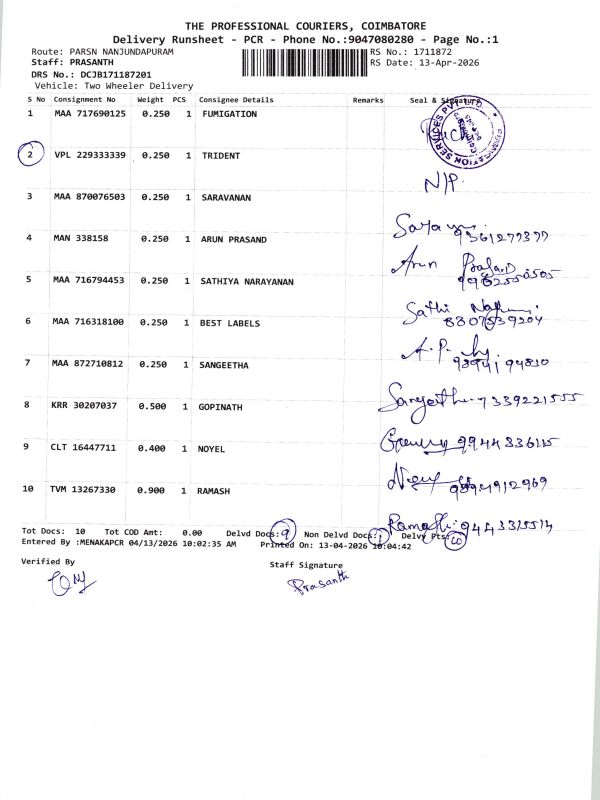 THE PROFESSIONAL COURIERS, COIMBATORE
Delivery Runsheet - PCR - Phone No.:9047080280 - Page No.:1
Route: PARSN NANJUNDAPURAM RS No.: 1711872
Staff: PRASANTH RS Date: 13-Apr-2026
DRS No.: DCJB171187201
Vehicle: Two Wheeler Delivery
S No Consignment No Weight PCS Consignee Details Remarks Seal & Signature
1 MAA 717690125 0.250 1 FUMIGATION
2 VPL 229333339 0.250 1 TRIDENT
N/P.
3 MAA 870076503 0.250 1 SARAVANAN
9361279377
4 MAN 338158 0.250 1 ARUN PRASAND
Arun Prasad
5 MAA 716794453 0.250 1 SATHIYA NARAYANAN
Sathi
8807539204
6 MAA 716318100 0.250 1 BEST LABELS
A.P.
9894194810
7 MAA 872710812 0.250 1 SANGEETHA
Sangeetha. 7339221555
8 KRR 30207037 0.500 1 GOPINATH
9944836115
9 CLT 16447711 0.400 1 NOYEL
9894912969
10 TVM 13267330 0.900 1 RAMASH
Ramash:
Tot Docs: 10 Tot COD Amt: 0.00 Delvd Docs: 9 Non Delvd Docs: 1 Delvy Pts: 10
Entered By :MENAKAPCR 04/13/2026 10:02:35 AM Printed On: 13-04-2026 10:04:42
Verified By Staff Signature
Prasanth